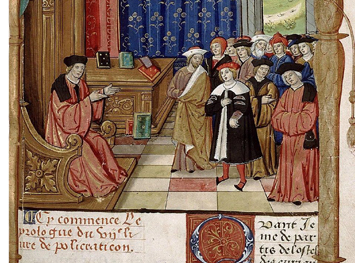 Cy commence le
prologue du vije li-
ure de policraticon.
Quant Je
me de par
tis de lostel